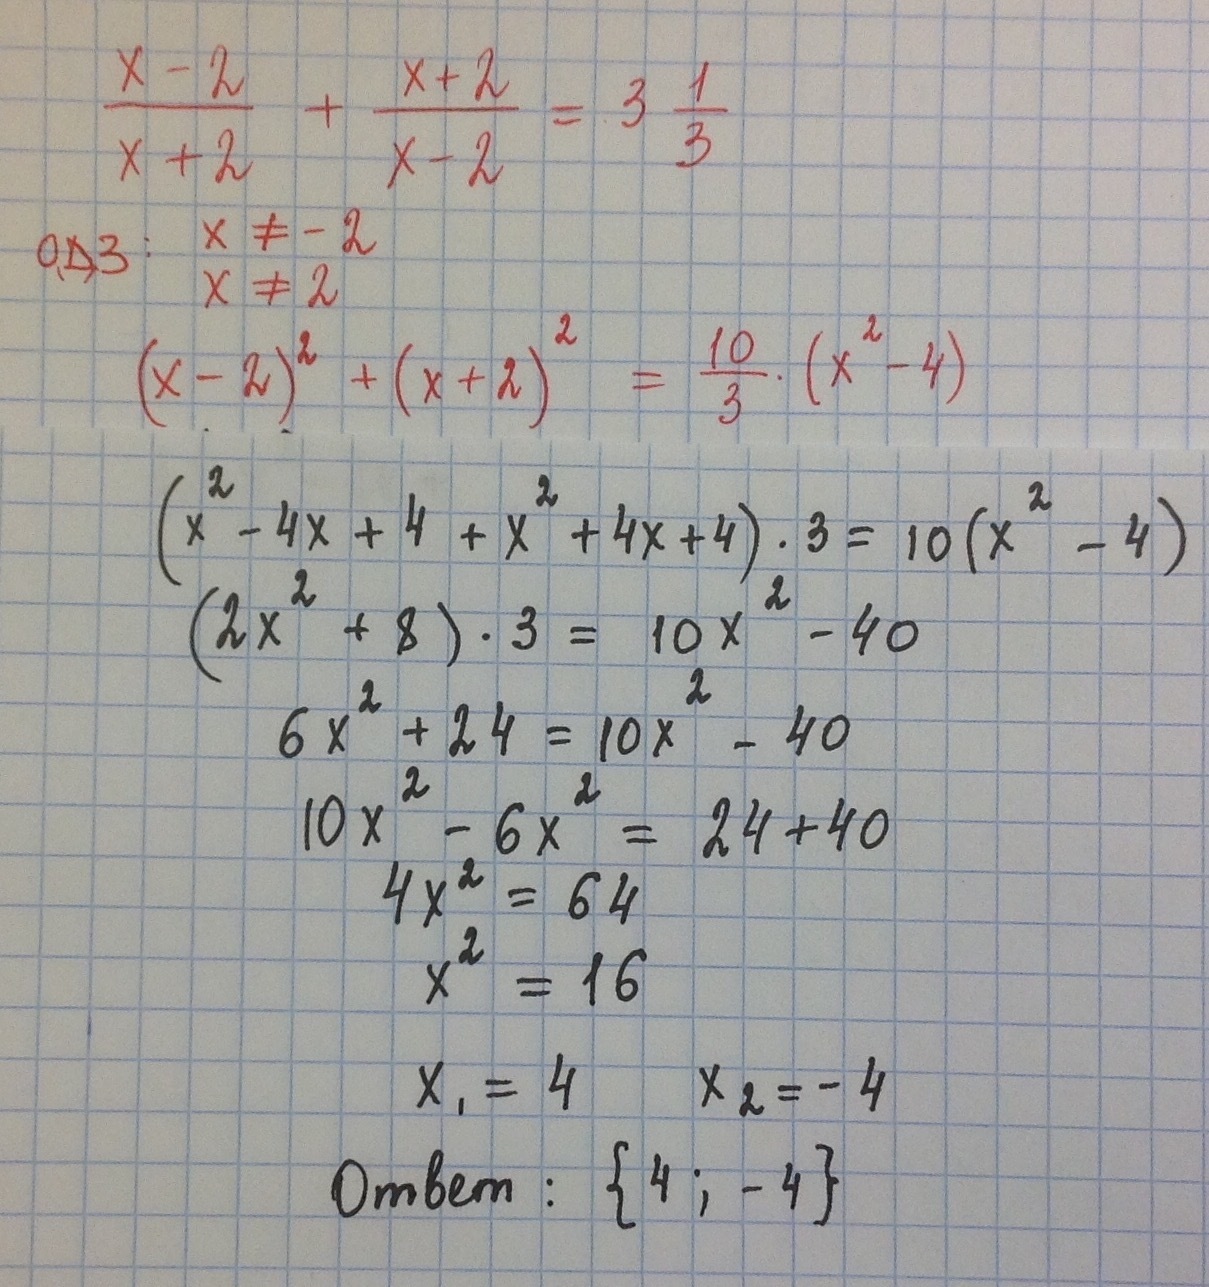 (x-2)/(x+2) + (x+2)/(x-2) = 3 1/3
ОДЗ: x ≠ -2
x ≠ 2
(x-2)² + (x+2)² = 10/3 · (x²-4)
(x² - 4x + 4 + x² + 4x + 4) · 3 = 10(x² - 4)
(2x² + 8) · 3 = 10x² - 40
6x² + 24 = 10x² - 40
10x² - 6x² = 24 + 40
4x² = 64
x² = 16
x₁ = 4 x₂ = -4
Ответ: {4; -4}